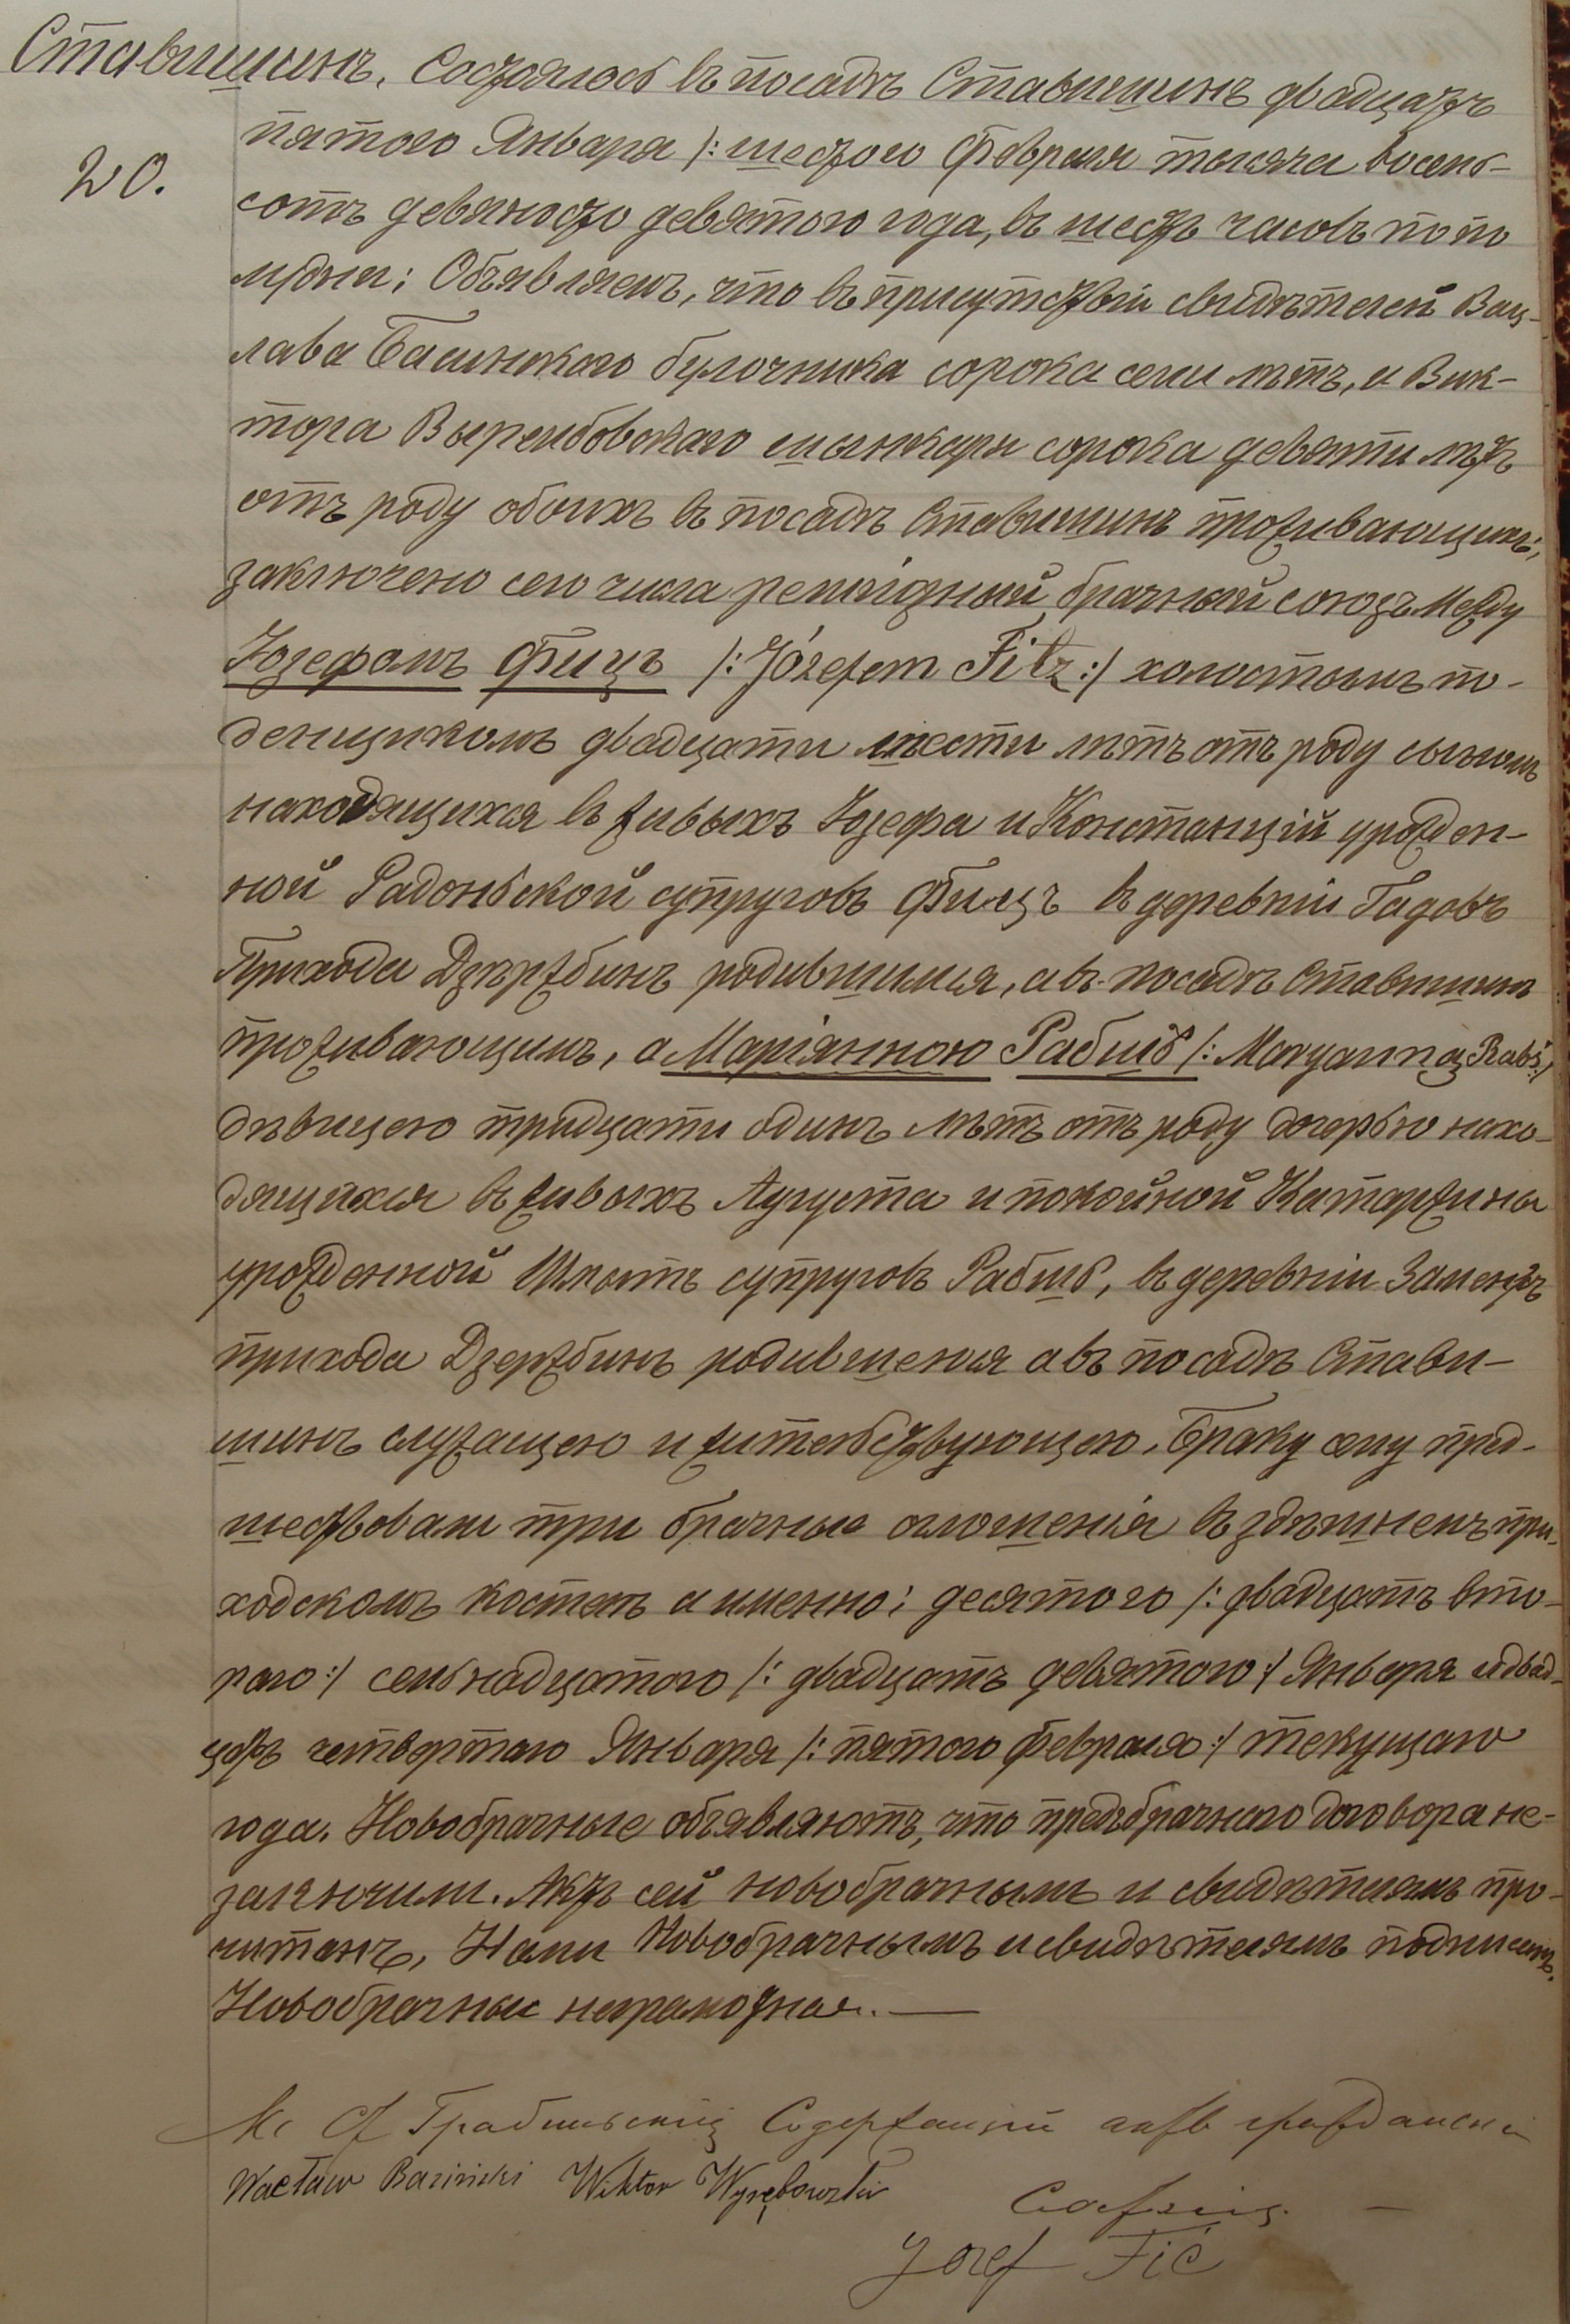 Ставишинъ. Состоялось въ посадѣ Ставишинъ двадцать
20. пятого Января /: шестого Февраля тысяча восемь-
сотъ девяносто девятого года, въ шесть часовъ по по
лудни; Объявляемъ, что въ присутствіи свидѣтелей Вац-
лава Басинскаго булочника сорока семи лѣтъ, и Вик-
тора Вырембовскаго сорока девяти лѣтъ
отъ роду обоихъ въ посадѣ Ставишинъ проживающихъ;
заключено сего числа религіозный брачный союзъ между
Юзефомъ Фицъ /: Józefem Fitz :/ холостымъ по-
денщикомъ двадцати шести лѣтъ отъ роду сыномъ
находящихся въ живыхъ Юзефа и Констанціи урожден-
ной Радоньской супруговъ Фицъ въ деревніи Гадовъ
Прихода Дзѣржбинъ родившимся, а въ посадѣ Ставишинъ
проживающимъ, а Маріянною Рабшъ /: Maryanną Rabś :/
дѣвицею тридцати одинъ лѣтъ отъ роду дочерью нахо-
дящихся въ живыхъ Аугуста и покойной Катаржины
урожденной супруговъ Рабшъ, въ деревніи
прихода Дзержбинъ родившеюся а въ посадѣ Стави-
шинъ служащею и жительствующею. Браку сему пред-
шествовали три брачные оглошенія въ здѣшнемъ при-
ходскомъ костелѣ а именно; десятого /: двадцать вто-
рого :/ семьнадцатого /: двадцать девятого :/ Января и двад-
цать четвертого Января /: пятого Февраля :/ текущаго
года. Новобрачные объявляютъ, что предъбрачного договора не-
заключили. Актъ сей новобрачнымъ и свидѣтелямъ про-
читанъ, Нами Новобрачнымъ и свидѣтелямъ подписанъ.
Новобрачные неграмотная. —
Содержащій актъ гражданскій
Wacław Baziński Wiktor Wyrębowski
Józef Fić